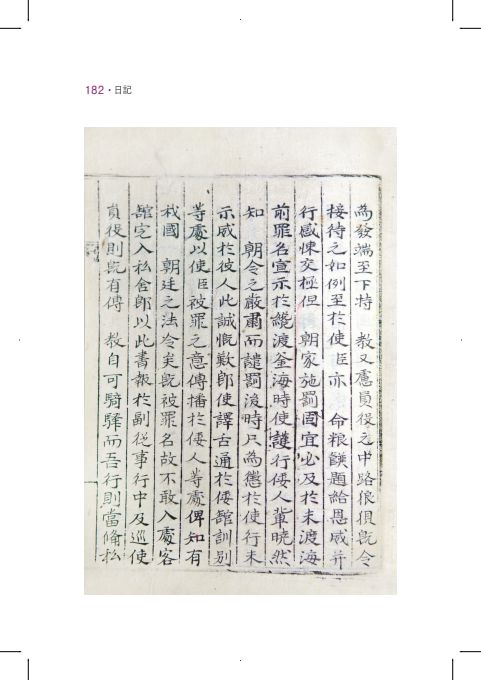 182・日記
為發端至下特　教又慮員役之中路狼狽旣令
接待之如例至於使臣亦　命粮饌題給恩威幷
行感悚交極但　朝家施罰固宜必及於未渡海
前罪名宣示於纔渡釜海時使護行倭人輩曉然
知　朝令之嚴肅而譴罰後時尺為懲於使行未
示威於彼人此誠慨歎卽使譯舌通於倭舘訓別
等處以使臣被罪之意傳播於倭人等處俾知有
我國　朝廷之法令矣旣被罪名故不敢入處客
舘定入私舍卽以此書報於副從事行中及巡使
員役則旣有傳　敎自可騎驛而吾行則當備私